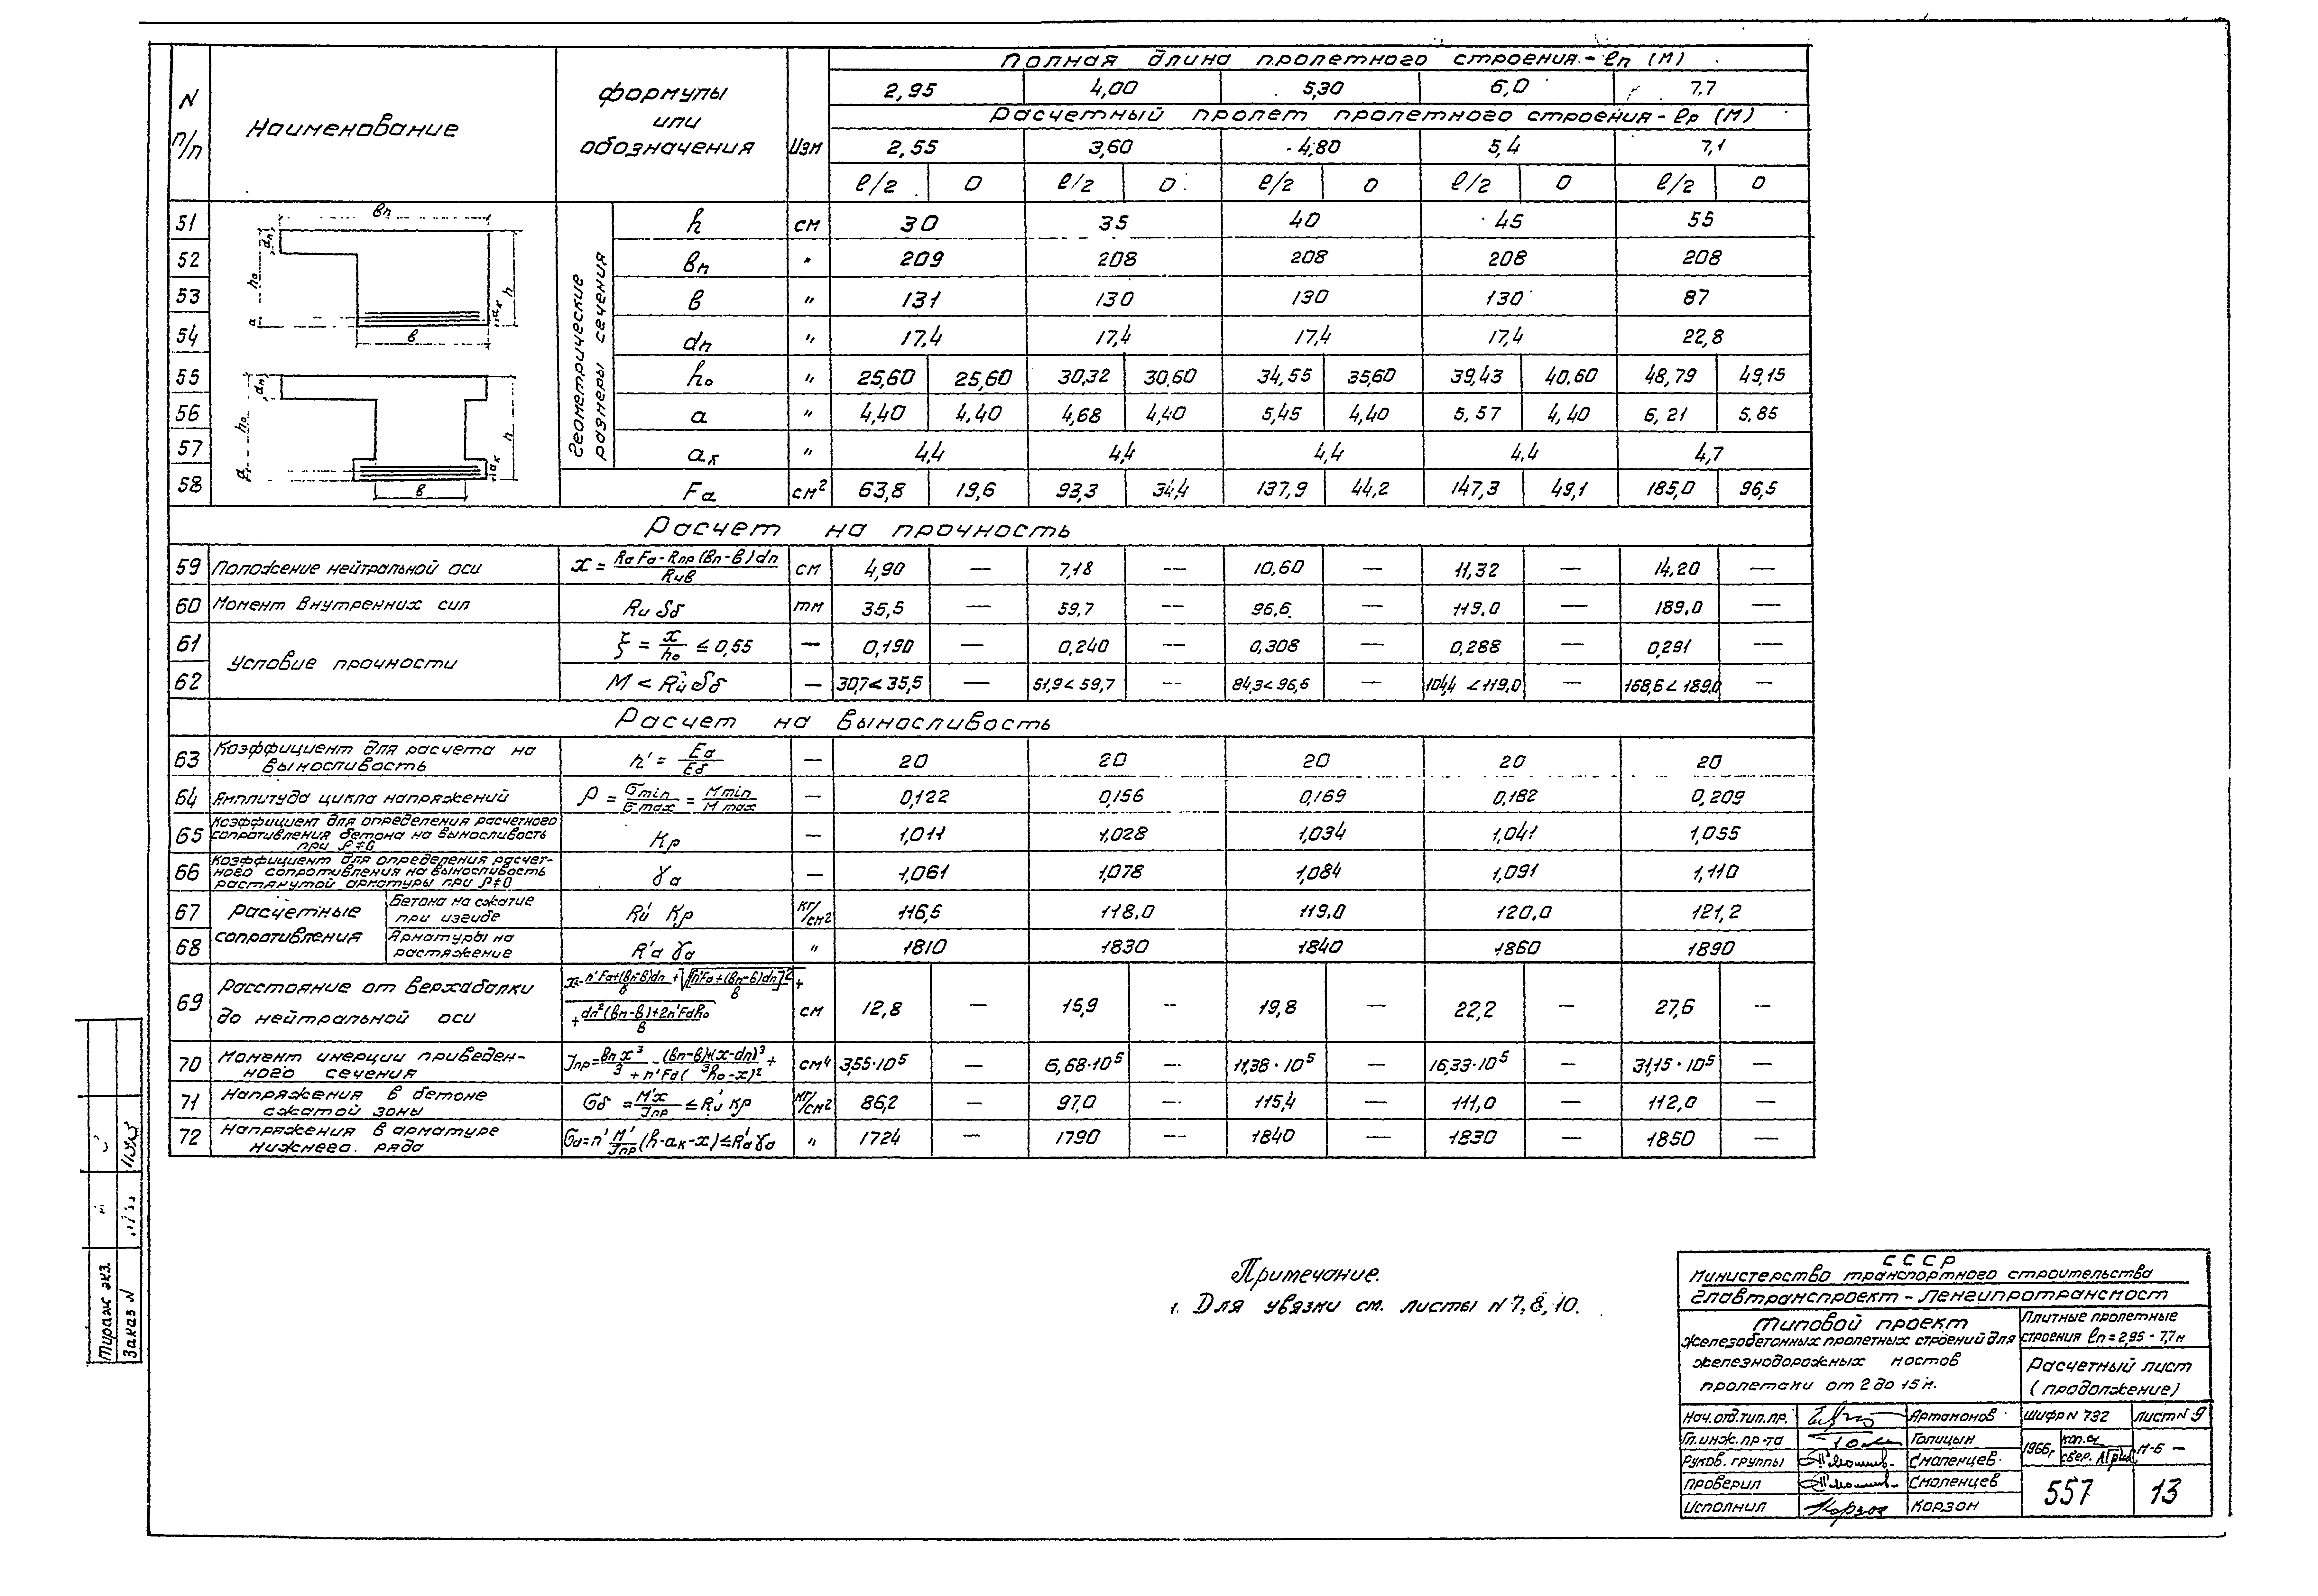 N п/п | Наименование | Формулы или обозначения | Изм | Полная длина пролетного строения - ℓп (м)
2,95 | 4,00 | 5,30 | 6,0 | 7,7
Расчетный пролет пролетного строения - ℓр (м)
2,55 | 3,60 | 4,80 | 5,4 | 7,1
ℓ/2 | 0 | ℓ/2 | 0 | ℓ/2 | 0 | ℓ/2 | 0 | ℓ/2 | 0
вп dп h₀ h a aк в
dп h₀ h a aк в
Геометрические размеры сечения
51 | h | см | 30 | 35 | 40 | 45 | 55
52 | вп | " | 209 | 208 | 208 | 208 | 208
53 | в | " | 131 | 130 | 130 | 130 | 87
54 | dп | " | 17,4 | 17,4 | 17,4 | 17,4 | 22,8
55 | h₀ | " | 25,60 | 25,60 | 30,32 | 30,60 | 34,55 | 35,60 | 39,43 | 40,60 | 48,79 | 49,15
56 | a | " | 4,40 | 4,40 | 4,68 | 4,40 | 5,45 | 4,40 | 5,57 | 4,40 | 6,21 | 5,85
57 | aк | " | 4,4 | 4,4 | 4,4 | 4,4 | 4,7
58 | Fа | см² | 63,8 | 19,6 | 93,3 | 34,4 | 137,9 | 44,2 | 147,3 | 49,1 | 185,0 | 96,5
Расчет на прочность
59 | Положение нейтральной оси | x = (Rа Fа - Rпр (вп - в) dп) / Rи в | см | 4,90 | — | 7,18 | — | 10,60 | — | 11,32 | — | 14,20 | —
60 | Момент внутренних сил | Rи Sб | тм | 35,5 | — | 59,7 | — | 96,6 | — | 119,0 | — | 189,0 | —
61 | Условие прочности | ξ = x/h₀ ≤ 0,55 | — | 0,190 | — | 0,240 | — | 0,308 | — | 0,288 | — | 0,291 | —
62 | M < Rи Sб | — | 30,7 < 35,5 | — | 51,9 < 59,7 | — | 84,3 < 96,6 | — | 104,4 < 119,0 | — | 168,6 < 189,0 | —
Расчет на выносливость
63 | Коэффициент для расчета на выносливость | n' = Eа/Eб | — | 20 | 20 | 20 | 20 | 20
64 | Амплитуда цикла напряжений | ρ = σmin/σmax = Mmin/Mmax | — | 0,122 | 0,156 | 0,169 | 0,182 | 0,209
65 | Коэффициент для определения расчетного сопротивления бетона на выносливость при ρ≠0 | Kρ | — | 1,011 | 1,028 | 1,034 | 1,041 | 1,055
66 | Коэффициент для определения расчетного сопротивления на выносливость растянутой арматуры при ρ≠0 | γа | — | 1,061 | 1,078 | 1,084 | 1,091 | 1,110
67 | Расчетные сопротивления | Бетона на сжатие при изгибе | R'и Kρ | кг/см² | 116,5 | 118,0 | 119,0 | 120,0 | 121,2
68 | Арматуры на растяжение | R'а γа | " | 1810 | 1830 | 1840 | 1860 | 1890
69 | Расстояние от верха балки до нейтральной оси | x = - (n'Fа + (вп - в)dп)/в + √([n'Fа + (вп - в)dп]²/в + + (dп²(вп - в) + 2n'Fа h₀)/в | см | 12,8 | — | 15,9 | — | 19,8 | — | 22,2 | — | 27,6 | —
70 | Момент инерции приведенного сечения | Jпр = вп x³/3 - (вп - в)(x - dп)³/3 + + n'Fа(h₀ - x)² | см⁴ | 3,55·10⁵ | — | 6,68·10⁵ | — | 11,38·10⁵ | — | 16,33·10⁵ | — | 31,15·10⁵ | —
71 | Напряжения в бетоне сжатой зоны | σб = M'x/Jпр ≤ R'и Kρ | кг/см² | 86,2 | — | 97,0 | — | 115,4 | — | 111,0 | — | 112,0 | —
72 | Напряжения в арматуре нижнего ряда | σа = n' M'/Jпр (h - aк - x) ≤ R'а γа | " | 1724 | — | 1790 | — | 1840 | — | 1830 | — | 1850 | —
Примечание.
1. Для увязки см. листы N 7, 8, 10.
Тираж экз.
Заказ N
СССР
Министерство транспортного строительства
Главтранспроект - Ленгипротрансмост
Типовой проект
железобетонных пролетных строений для
железнодорожных мостов
пролетами от 2 до 15 м.
Плитные пролетные
строения ℓп = 2,95 - 7,7 м
Расчетный лист
(продолжение)
Нач. отд. тип. пр. | Артамонов | Шифр N 732 | Лист N 9
Гл. инж. пр-та | Голицын | 1966г | коп. | свер. | М-б —
Руков. группы | Смоленцев
Проверил | Смоленцев | 557 | 13
Исполнил | Корзон